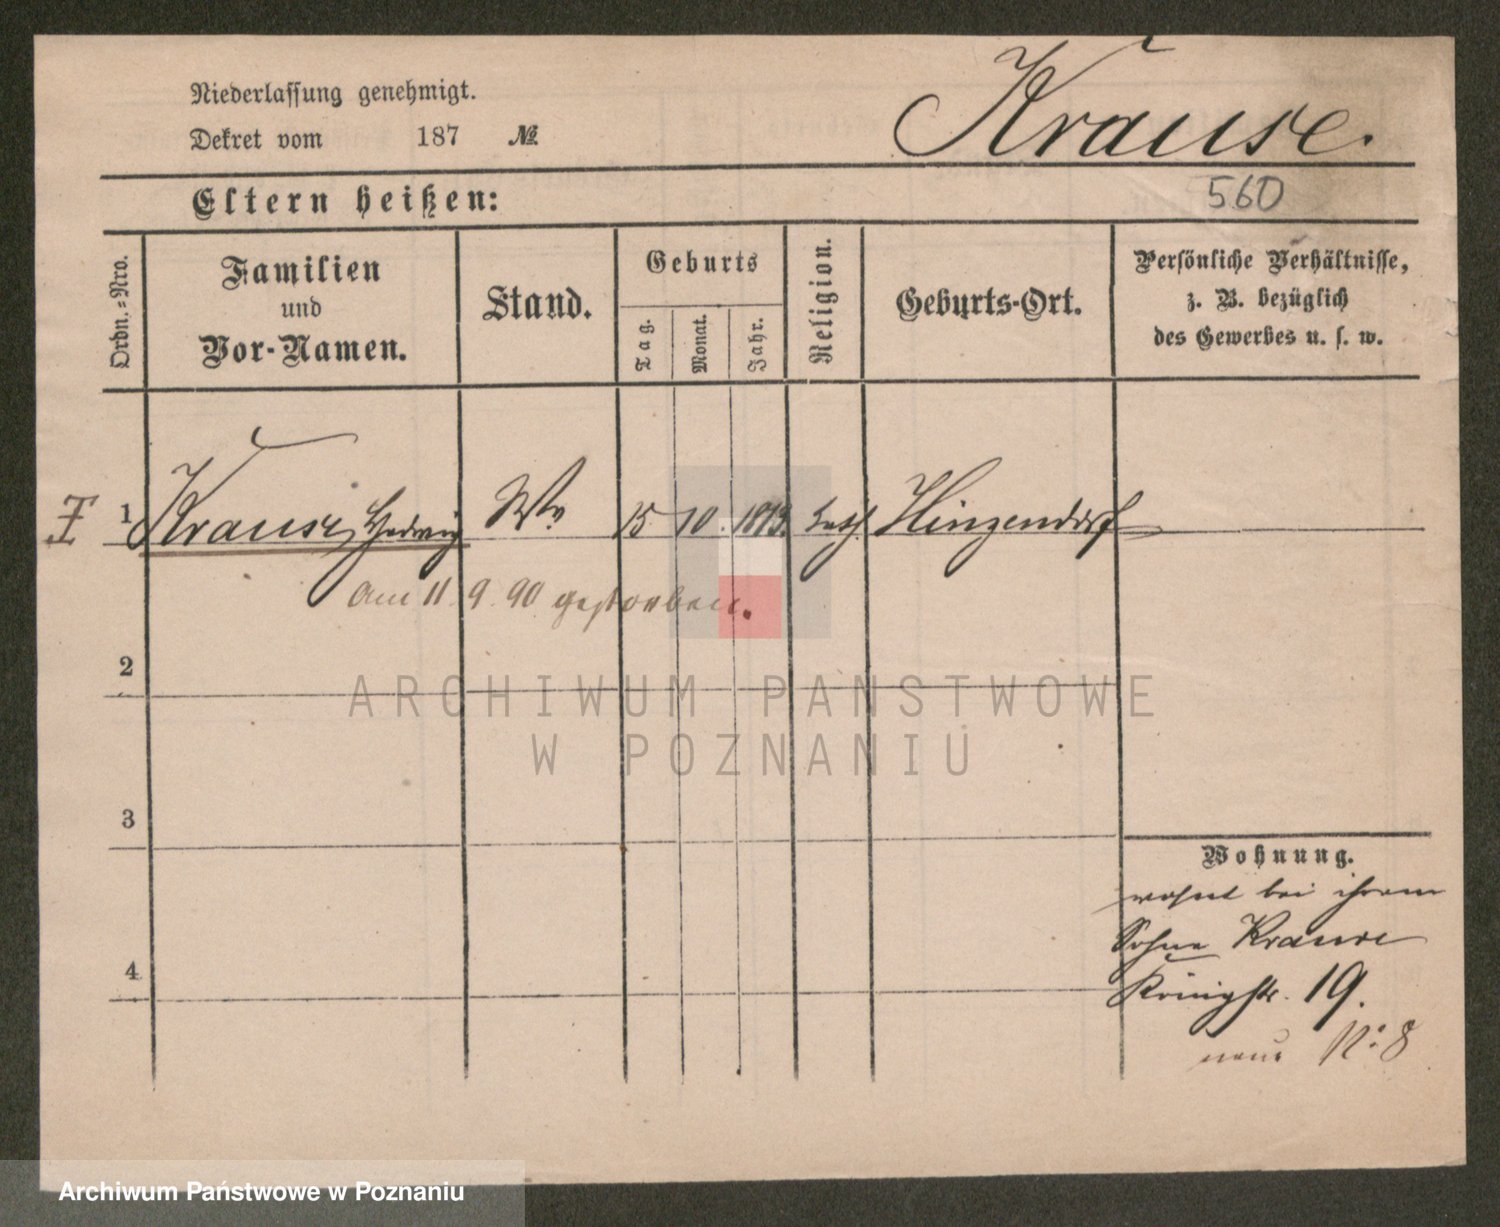 Niederlassung genehmigt.
Dekret vom 187 №
Krause.
560
Eltern heißen:
Ordn.-Nro.
Familien
und
Vor-Namen.
Stand.
Geburts
Tag.
Monat.
Jahr.
Religion.
Geburts-Ort.
Persönliche Verhältnisse,
z. B. bezüglich
des Gewerbes u. s. w.
1 Krause, Hedwig Wv. 15 10. 1813. kath. Hinzendorf
am 11. 9. 90 gestorben.
2
ARCHIWUM PANSTWOWE
W POZNANIU
3
Wohnung.
wohnt bei ihrem
Sohne Krause
4
Königstr. 19.
neue No: 8
Archiwum Państwowe w Poznaniu